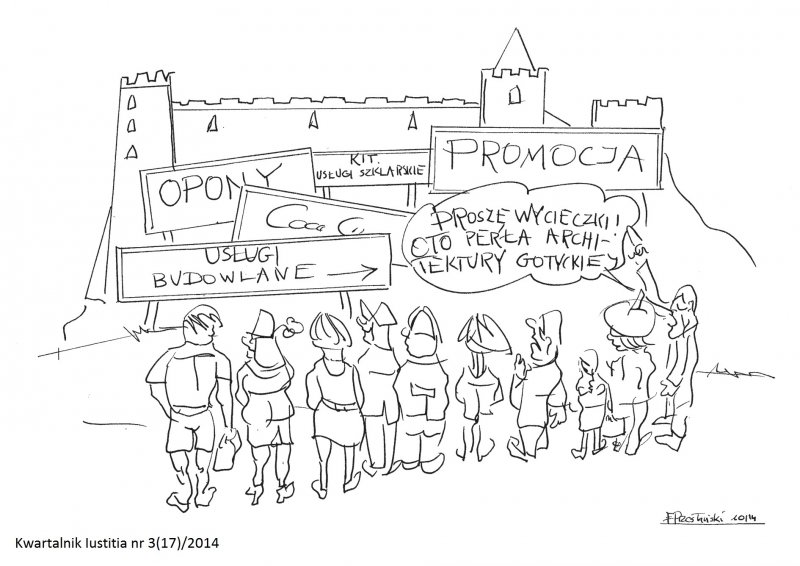 KIT.
USŁUGI SZKLARSKIE
PROMOCJA
OPONY
Coca C
USŁUGI
BUDOWLANE →
PROSZĘ WYCIECZKI!
OTO PERŁA ARCHI-
TEKTURY GOTYCKIEJ
10/14
Kwartalnik Iustitia nr 3(17)/2014